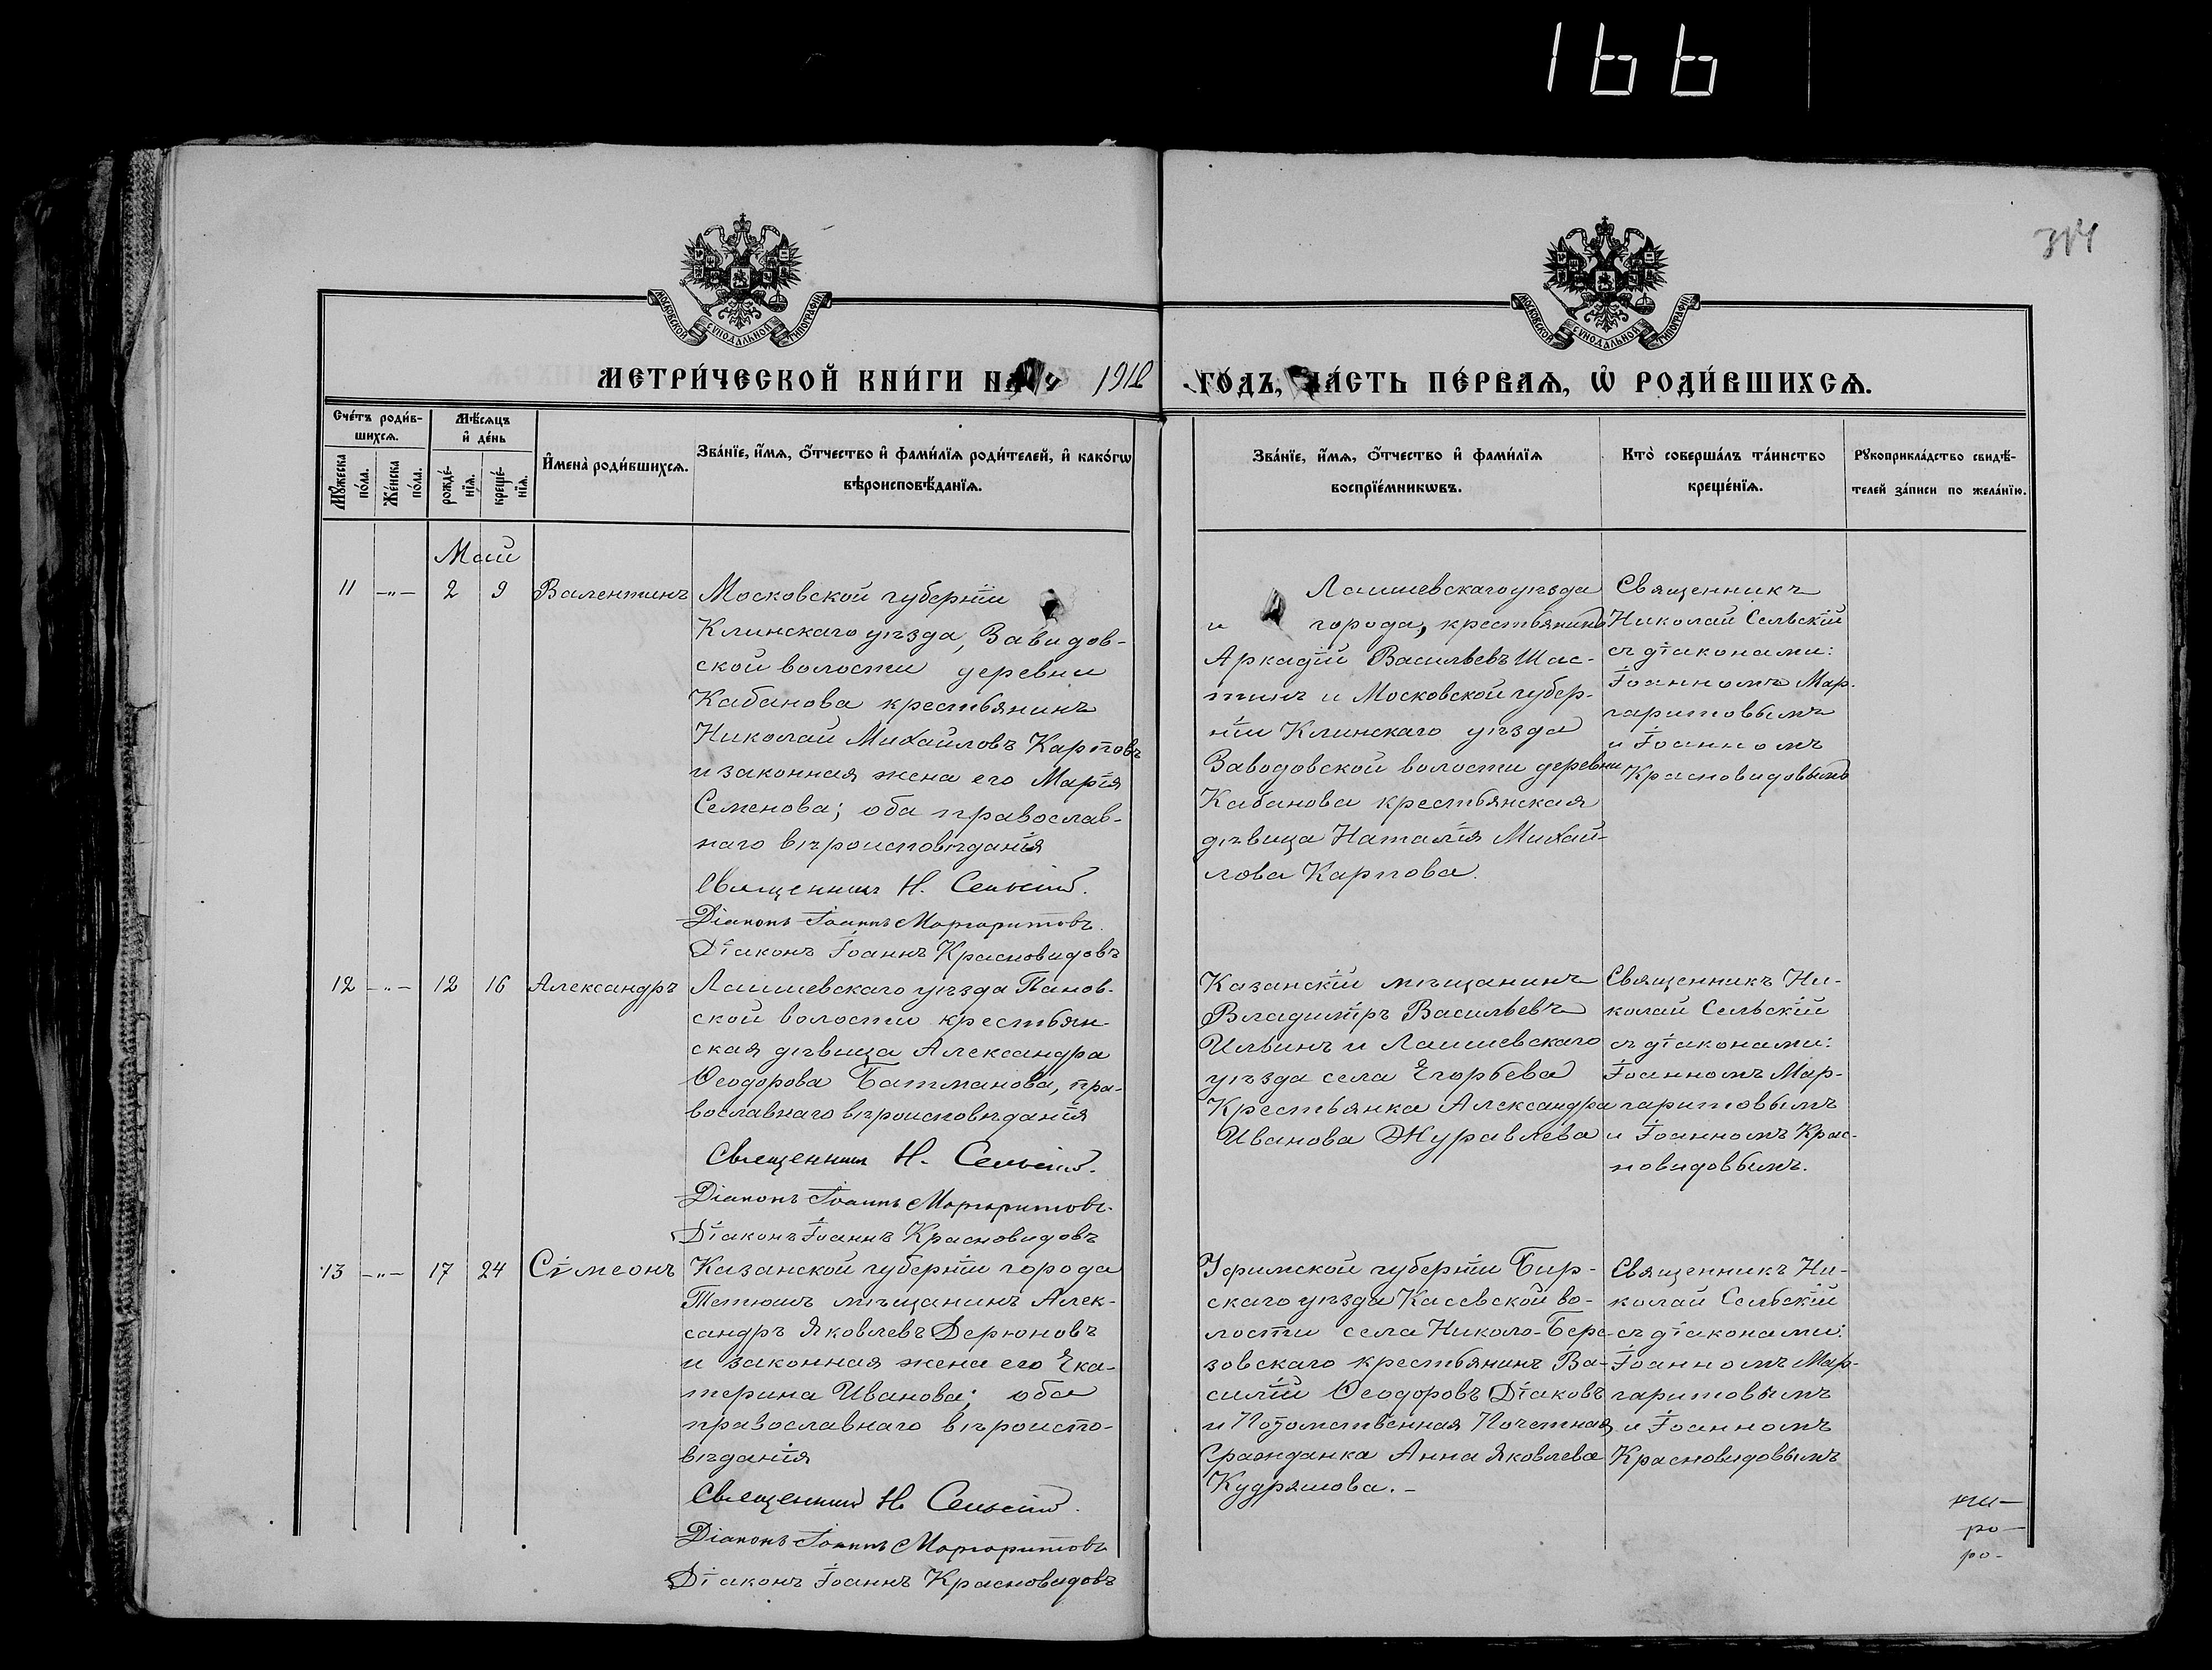 166
314
МОСКОВСКОЙ СѴНОДАЛЬНОЙ ТИПОГРАФІИ
МОСКОВСКОЙ СѴНОДАЛЬНОЙ ТИПОГРАФІИ
МЕТРИ́ЧЕСКОЙ КНИ́ГИ НА 1912 ГО́ДЪ, ЧА́СТЬ ПЕ́РВАѦ, Ѡ҆ РОДИ́ВШИХСѦ.
Сче́тъ роди́в-
шихсѧ.
Мѣ́сѧцъ
и҆ де́нь
Мꙋ́жеска
по́ла.
Же́нска
по́ла.
рожде́-
нїѧ.
креще́-
нїѧ.
И҆мена̀ роди́вшихсѧ.
Зва́нїе, и҆́мѧ, ѻ҆́тчество и҆ фами́лїѧ роди́телей, и҆ како́гѡ
вѣроисповѣ́данїѧ.
Зва́нїе, и҆́мѧ, ѻ҆́тчество и҆ фами́лїѧ
воспрїе́мникѡвъ.
Кто̀ соверша́лъ та́инство
креще́нїѧ.
Рꙋкоприкла́дство свидѣ́-
телей за́писи по жела́нїю.
Май
11 —„— 2 9 Валентинъ
Московской губерніи
Клинскаго уѣзда, Завидов-
ской волости деревни
Кабанова крестьянинъ
Николай Михайловъ Карповъ
и законная жена его Марія
Семенова; оба православ-
наго вѣроисповѣданія
Священникъ Н. Сельскій.
Діаконъ Іоаннъ Маргаритовъ.
Діаконъ Іоаннъ Красновидовъ
Лаишевскаго уѣзда
и города, крестьянинъ
Аркадій Васильевъ Шас-
тинъ и Московской губер-
ніи Клинскаго уѣзда
Заводовской волости деревни
Кабанова крестьянская
дѣвица Наталія Михай-
лова Карпова.
Священникъ
Николай Сельскій
съ діаконами:
Іоанномъ Мар-
гаритовымъ
и Іоанномъ
Красновидовымъ
12 —„— 12 16 Александръ
Лаишевскаго уѣзда Панов-
ской волости крестьян-
ская дѣвица Александра
Ѳеодорова Батманова, пра-
вославнаго вѣроисповѣданія
Священникъ Н. Сельскій.
Діаконъ Іоаннъ Маргаритовъ.
Діаконъ Іоаннъ Красновидовъ
Казанскій мѣщанинъ
Владиміръ Васильевъ
Ильинъ и Лаишевскаго
уѣзда села Егорьева
Крестьянка Александра
Иванова Журавлева
Священникъ Ни-
колай Сельскій
съ діаконами:
Іоанномъ Мар-
гаритовымъ
и Іоанномъ Крас-
новидовымъ.
13 —„— 17 24 Сімеонъ
Казанской губерніи города
Тетюшъ мѣщанинъ Алек-
сандръ Яковлевъ Дерюновъ
и законная жена его Ека-
терина Иванова; оба
православнаго вѣроиспо-
вѣданія
Священникъ Н. Сельскій.
Діаконъ Іоаннъ Маргаритовъ
Діаконъ Іоаннъ Красновидовъ
Уфимской губерніи Бир-
скаго уѣзда Касевской во-
лости села Николо-Бере-
зовскаго крестьянинъ Ва-
силій Ѳеодоровъ Діаковъ
и Потомственная Почетная
Гражданка Анна Яковлева
Кудряшова. –
Священникъ Ни-
колай Сельскій
съ діаконами:
Іоанномъ Мар-
гаритовымъ
и Іоанномъ
Красновидовымъ
ро—
ро-